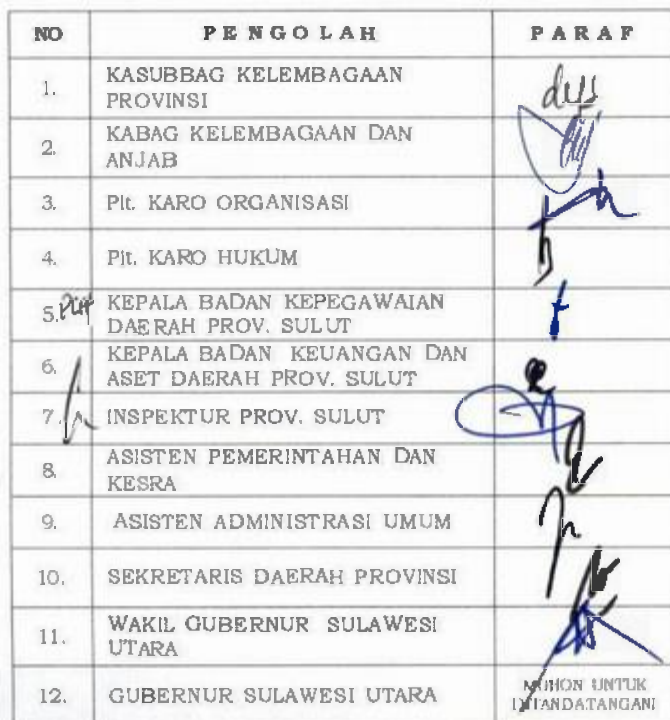 NO PENGOLAH PARAF
1. KASUBBAG KELEMBAGAAN
PROVINSI
2. KABAG KELEMBAGAAN DAN
ANJAB
3. Plt. KARO ORGANISASI
4. Plt. KARO HUKUM
5. Plt KEPALA BADAN KEPEGAWAIAN
DAERAH PROV. SULUT
6. KEPALA BADAN KEUANGAN DAN
ASET DAERAH PROV. SULUT
7. INSPEKTUR PROV. SULUT
8. ASISTEN PEMERINTAHAN DAN
KESRA
9. ASISTEN ADMINISTRASI UMUM
10. SEKRETARIS DAERAH PROVINSI
11. WAKIL GUBERNUR SULAWESI
UTARA
12. GUBERNUR SULAWESI UTARA
MOHON UNTUK
DITANDATANGANI